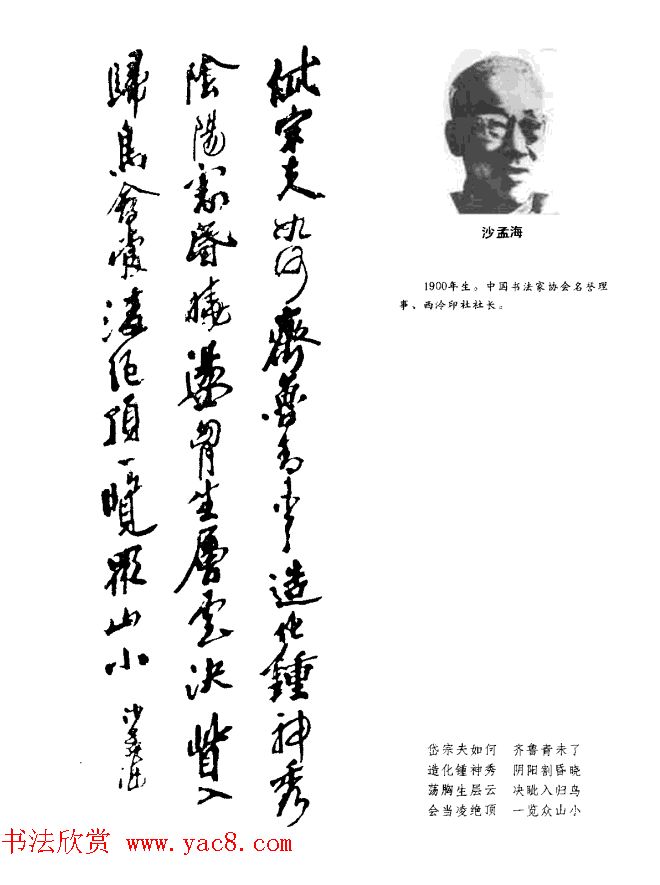 岱宗夫如何齊魯青未了造化鍾神秀
陰陽割昏曉盪胷生層雲決眥入
歸鳥會當凌絕頂一覽眾山小
沙孟海
沙孟海
1900年生。中国书法家协会名誉理
事、西泠印社社长。
岱宗夫如何 齐鲁青未了
造化锺神秀 阴阳割昏晓
荡胸生层云 决眦入归鸟
会当凌绝顶 一览众山小
书法欣赏 www.yac8.com